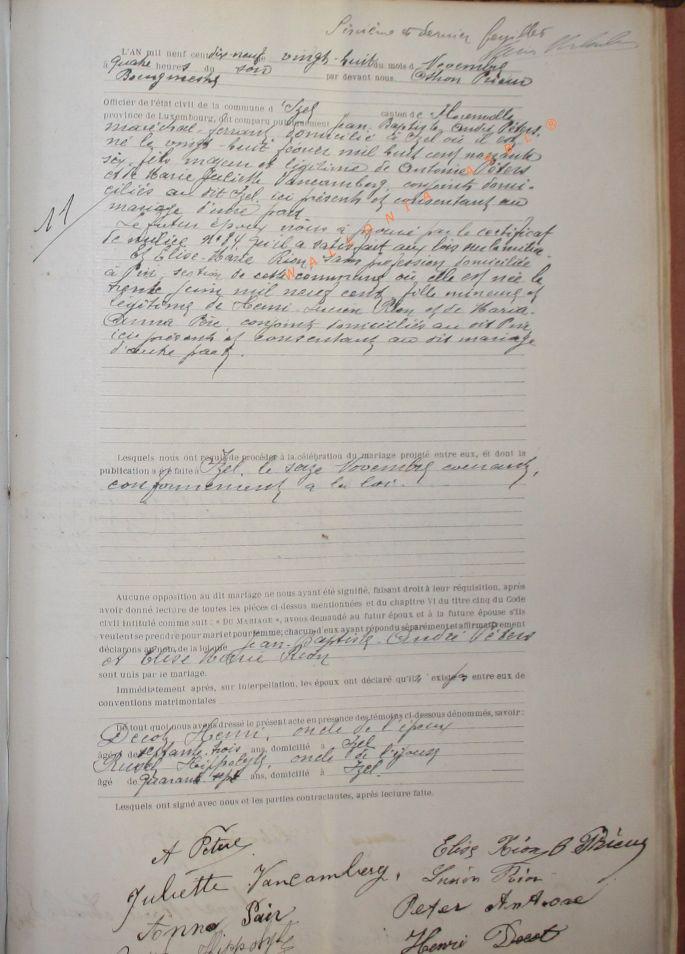 Sixième et dernier feuillet
L'AN mil neuf cent dix-neuf le vingt-huit du mois de Novembre
à quatre heures du soir par devant nous
Bourgmestre
Officier de l'état civil de la commune d'Izel canton de Florenville
province de Luxembourg, ont comparu publiquement Jean-Baptiste André Péters,
maréchal-ferrant domicilié à Izel où il est
né le vingt-huit février mil huit cent nonante
six, fils majeur et légitime de Antoine Péters
et de Marie Juliette Vancamberg, conjoints domi-
ciliés au dit Izel, ici présents et consentant au
mariage d'une part
11
Le futur époux nous a fourni par le certificat
de milice n° qu'il a satisfait aux lois sur la milice.
Et Elise-Marie Rion, sans profession domiciliée
à Pin, section de cette commune où elle est née le
trente juin mil neuf cent, fille mineure et
légitime de Henri-Lucien Rion et de Maria-
Anna conjoints domiciliés au dit Pin,
ici présents et consentant au dit mariage
d'autre part.
WALLONIE
Lesquels nous ont requis de procéder à la célébration du mariage projeté entre eux, et dont la
publication a été faite à Izel, le seize Novembre courant,
conformément à la loi.
Aucune opposition au dit mariage ne nous ayant été signifié, faisant droit à leur réquisition, après
avoir donné lecture de toutes les pièces ci-dessus mentionnées et du chapitre VI du titre cinq du Code
civil intitulé comme suit : « DU MARIAGE », avons demandé au futur époux et à la future épouse s'ils
veulent se prendre pour mari et pour femme; chacun d'eux ayant répondu séparément et affirmativement
déclarons au nom de la loi que Jean-Baptiste-André Péters
et Elise Marie Rion
sont unis par le mariage.
Immédiatement après, sur interpellation, les époux ont déclaré qu'il existe entre eux de
conventions matrimoniales
De tout quoi nous avons dressé le présent acte en présence des témoins ci-dessous dénommés, savoir :
Decot Henri, oncle de l'époux
âgé de septante-trois ans, domicilié à Izel
Hippolyte, oncle de l'épouse
âgé de quarante-sept ans, domicilié à Izel
Lesquels ont signé avec nous et les parties contractantes, après lecture faite.
A Péters Elise Rion
Juliette Vancamberg, Lucien Rion
Anna Peter Antoine
Hippolyte Henri Decot